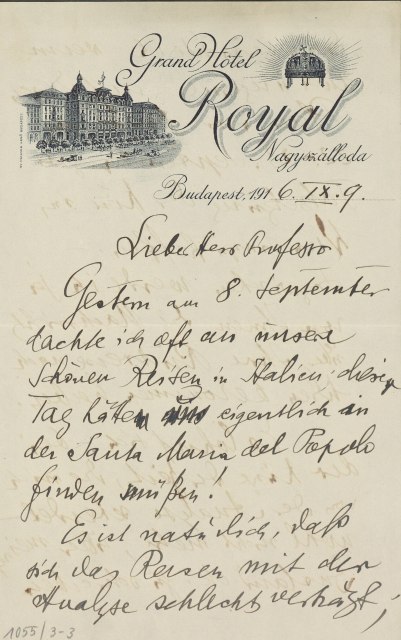 Grand Hôtel
Royal
Nagyszálloda
Budapest, 1916. IX. 9.
Lieber Herr Professor
Gestern am 8. September
dachte ich oft an unsere
schönen Reisen in Italien; diesen
Tag hätten uns eigentlich in
der Santa Maria del Popolo
finden müßen!
Es ist natürlich, daß
sich das Reisen mit der
Analyse schlecht verträgt;
1055/3-3